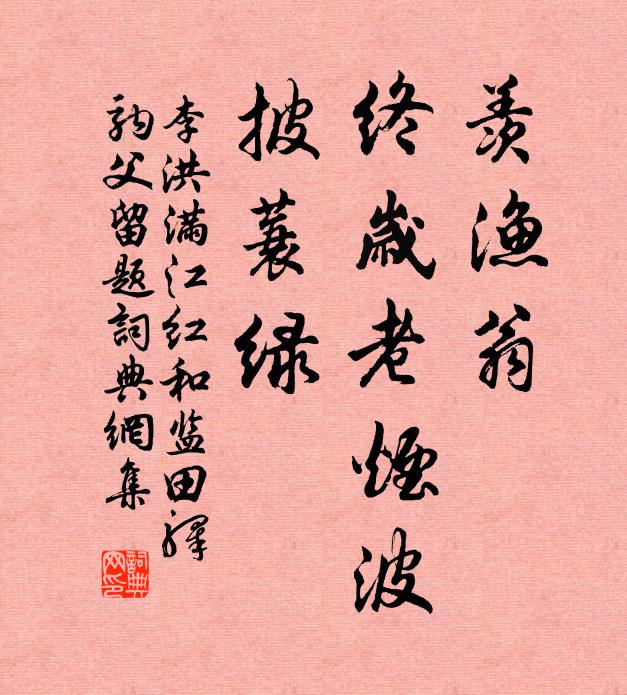 羡渔翁
终岁老烟波
披蓑绿
李洪满江红和监田驿
韵父留题词典网集
词典网印